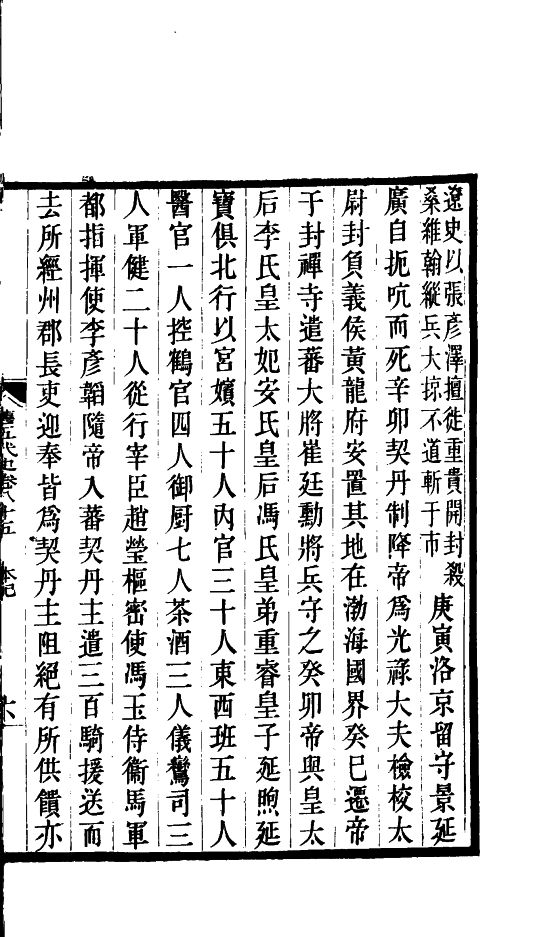 遼史以張彥澤擅徙重貴開封殺
桑維翰縱兵大掠不道斬于市
庚寅洛京留守景延
廣自扼吭而死辛卯契丹制降帝爲光祿大夫檢校太
尉封負義侯黃龍府安置其地在渤海國界癸巳遷帝
于封禪寺遣蕃大將崔廷勳將兵守之癸卯帝與皇太
后李氏皇太妃安氏皇后馮氏皇弟重睿皇子延煦延
寶俱北行以宮嬪五十人內官三十人東西班五十人
醫官一人控鶴官四人御厨七人茶酒三人儀鸞司三
人軍健二十人從行宰臣趙瑩樞密使馮玉侍衞馬軍
都指揮使李彥韜隨帝入蕃契丹主遣三百騎援送而
去所經州郡長吏迎奉皆爲契丹主阻絕有所供饋亦
舊五代史卷八十五 本紀 六